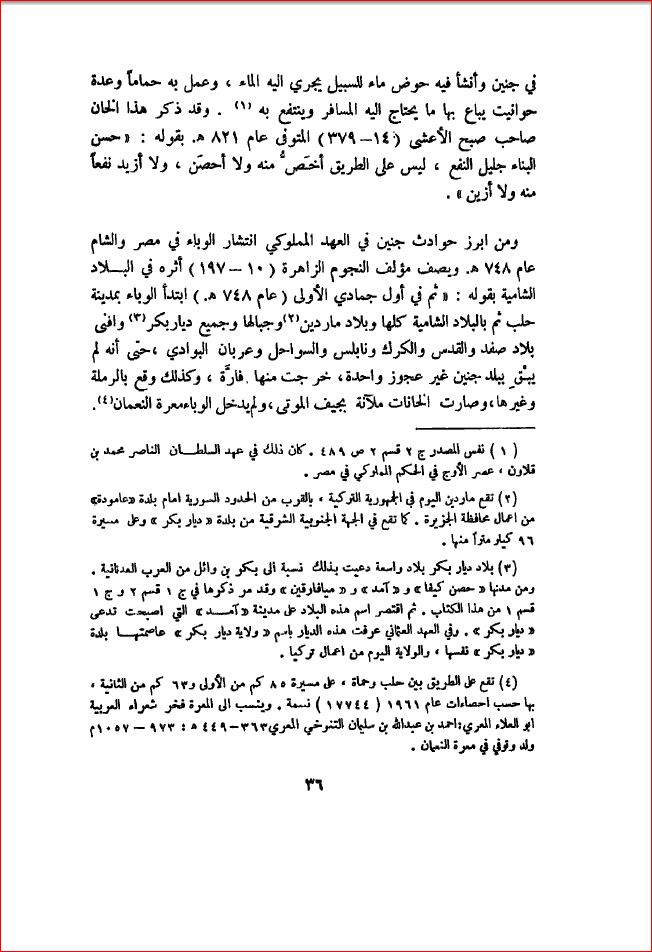 في جنين وأنشأ فيه حوض ماء للسبيل يجري اليه الماء ، وعمل به حماماً وعدة
حوانيت يباع بها ما يحتاج اليه المسافر وينتفع به (١) . وقد ذكر هذا الخان
صاحب صبح الأعشى (١٤ – ٣٧٩) المتوفى عام ٨٢١ هـ. بقوله : « حسن
البناء جليل النفع ، ليس على الطريق أخصّ منه ولا أحصن ، ولا أزيد نفعاً
منه ولا أزين » .
ومن ابرز حوادث جنين في العهد المملوكي انتشار الوباء في مصر والشام
عام ٧٤٨ هـ. ويصف مؤلف النجوم الزاهرة ( ١٠ – ١٩٧ ) أثره في البـلاد
الشامية بقوله : « ثم في أول جمادي الأولى ( عام ٧٤٨ هـ. ) ابتدأ الوباء بمدينة
حلب ثم بالبلاد الشامية كلها وبلاد ماردين(٢)وجبالها وجميع ديار بكر(٣) وافنى
بلاد صفد والقدس والكرك ونابلس والسواحل وعربان البوادي ،حتّى أنه لم
يبْقَ ببلد جنين غير عجوز واحدة، خرجت منها فارَّة ، وكذلك وقع بالرملة
وغيرها،وصارت الخانات ملآنة بجيف الموتى،ولم يدخل الوباءمعرة النعمان(٤).
( ١ ) نفس المصدر ج ٢ قسم ٢ ص ٤٨٩ . كان ذلك في عهد السلطـان الناصر محمد بن
قلاون ، عصر الأوج في الحكم المملوكي في مصر .
(٢) تقع ماردين اليوم في الجمهورية التركية ، بالقرب من الحدود السورية امام بلدة «عامودة»
من اعمال محافظة الجزيرة . كما تقع في الجهة الجنوبية الشرقية من بلدة « ديار بكر » وعلى مسيرة
٩٦ كيلو متراً منها .
(٣) بلاد ديار بكر بلاد واسعة دعيت بذلك نسبة الى بكر بن وائل من العرب العدنانية .
ومن مدنها « حصن كيفا » و « آمد » و « ميافارقين » وقد مر ذكرها في ج ١ قسم ٢ و ج ١
قسم ١ من هذا الكتاب . ثم اقتصر اسم هذه البلاد على مدينة « آمـد » التي اصبحت تدعى
« ديار بكر » . وفي العهد العثماني عرفت هذه الديار باسم « ولاية ديار بكر » عاصمتهـا بلدة
« ديار بكر » نفسها ، والولاية اليوم من اعمال تركيا .
(٤) تقع على الطريق بين حلب وحماة ، على مسيرة ٨٥ كم من الأولى و٦٣ كم من الثانية ،
بها حسب احصاءات عام ١٩٦١ ( ١٧٧٤٤ ) نسمة . وينسب الى المعرة فخر شعراء العربية
ابو العلاء المعري:احمد بن عبدالله بن سليمان التنوخي المعري٣٦٣–٤٤٩ هـ : ٩٧٣ – ١٠٥٧م
ولد وتوفي في معرة النعمان .
٣٦